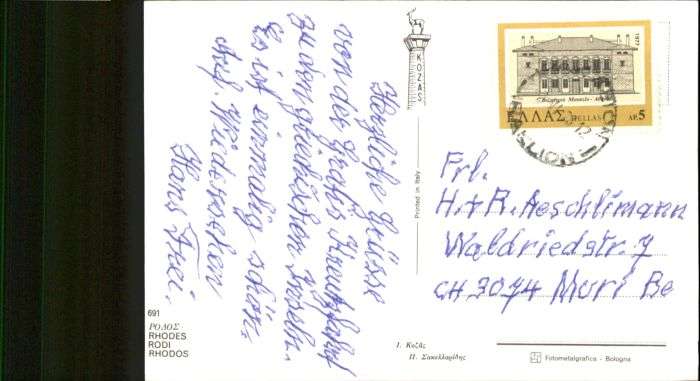 Herzliche Grüsse
von der Gratis Kreuzfahrt
zu den griechischen Inseln.
Es ist einmalig schön.
Auf Wiedersehen
Hans Frei.
691
ΡΟΔΟΣ
RHODES
RODI
RHODOS
KOZAS
Printed in Italy
1977
ΕΛΛΑΣ HELLAS ΔΡ. 5
Frl.
H. + R. Aeschlimann
Waldriedstr. 7
CH 3074 Muri Be
Ι. Κοζᾶς
Π. Σακελλαρίδης
Fotometalgrafica - Bologna